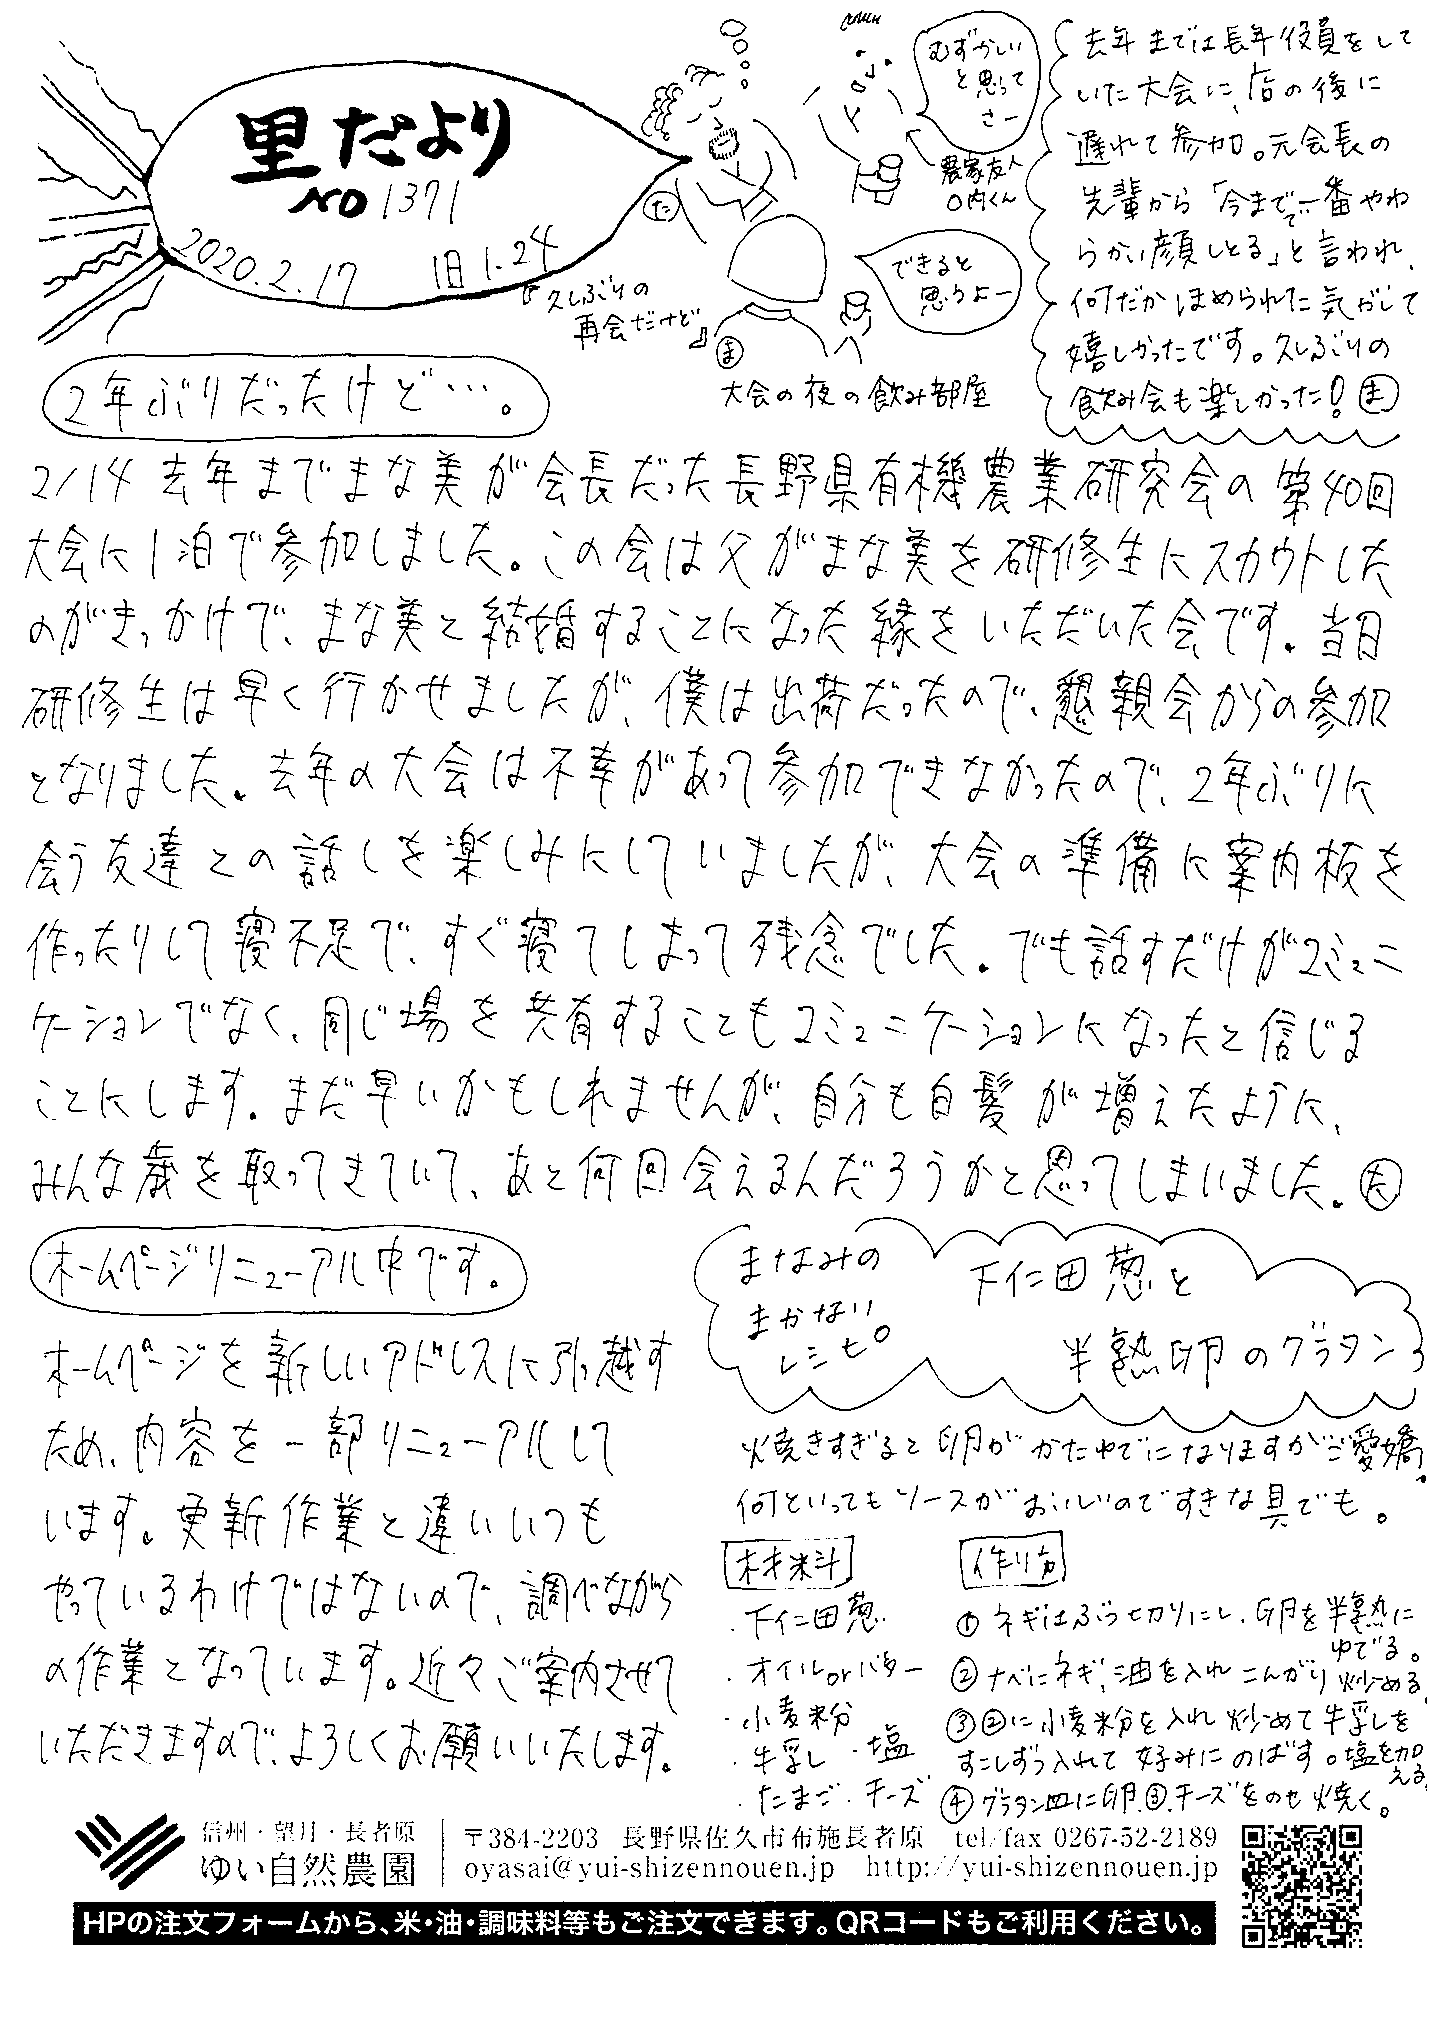 里だより
NO 1371
2020.2.17 旧 1.24
むずかしい
と思って
さー
農家友人
○内くん
た
できると
思うよー
『久しぶりの
再会だけど』
ま
大会の夜の飲み部屋
去年までは長年役員をして
いた大会に、店の後に
遅れて参加。元会長の
先輩から「今までで一番やわ
らかい顔しとる」と言われ、
何だかほめられた気がして
嬉しかったです。久しぶりの
飲み会も楽しかった! ま
2年ぶりだったけど…。
2/14 去年までまな美が会長だった長野県有機農業研究会の第40回
大会に1泊で参加しました。この会は父がまな美を研修生にスカウトした
のがきっかけで、まな美と結婚することになった縁をいただいた会です。当日
研修生は早く行かせましたが、僕は出荷だったので、懇親会からの参加
となりました。去年の大会は不幸があって参加できなかったので、2年ぶりに
会う友達との話しを楽しみにしていましたが、大会の準備に案内板を
作ったりして寝不足で、すぐ寝てしまって残念でした。でも話すだけがコミュニ
ケーションでなく、同じ場を共有することもコミュニケーションになったと信じる
ことにします。まだ早いかもしれませんが、自分も白髪が増えたように、
みんな歳を取ってきていて、あと何回会えるんだろうかと思ってしまいました。た
ホームページリニューアル中です。
ホームページを新しいアドレスに引っ越す
ため、内容を一部リニューアルして
います。更新作業と違いいつも
やっているわけではないので、調べながら
の作業となっています。近々ご案内させて
いただきますので、よろしくお願いいたします。
まなみの
まかない
レシピ
下仁田葱と
半熟卵のグラタン
焼きすぎると卵がかたゆでになりますがご愛嬌。
何といってもソースがおいしいのですきな具でも。
材料
・下仁田葱
・オイルorバター
・小麦粉
・牛乳 ・塩
・たまご・チーズ
作り方
① ネギはぶつ切りにし、卵を半熟に
ゆでる。
② ナベにネギ、油を入れこんがり炒める。
③ ②に小麦粉を入れ炒めて牛乳を
すこしずつ入れて好みにのばす。塩を加
える。
④ グラタン皿に卵、③、チーズをのせ焼く。
信州・望月・長者原
ゆい自然農園
〒384-2203 長野県佐久市布施長者原 tel/fax 0267-52-2189
oyasai@yui-shizennouen.jp http://yui-shizennouen.jp
HPの注文フォームから、米・油・調味料等もご注文できます。QRコードもご利用ください。